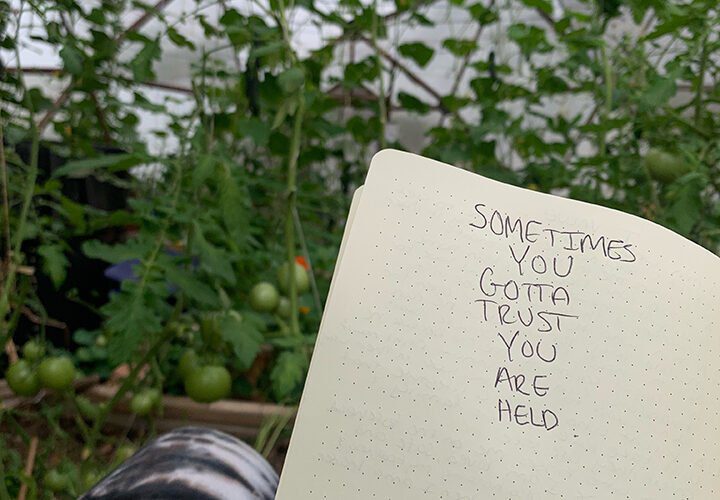 SOMETIMES
YOU
GOTTA
TRUST
YOU
ARE
HELD.